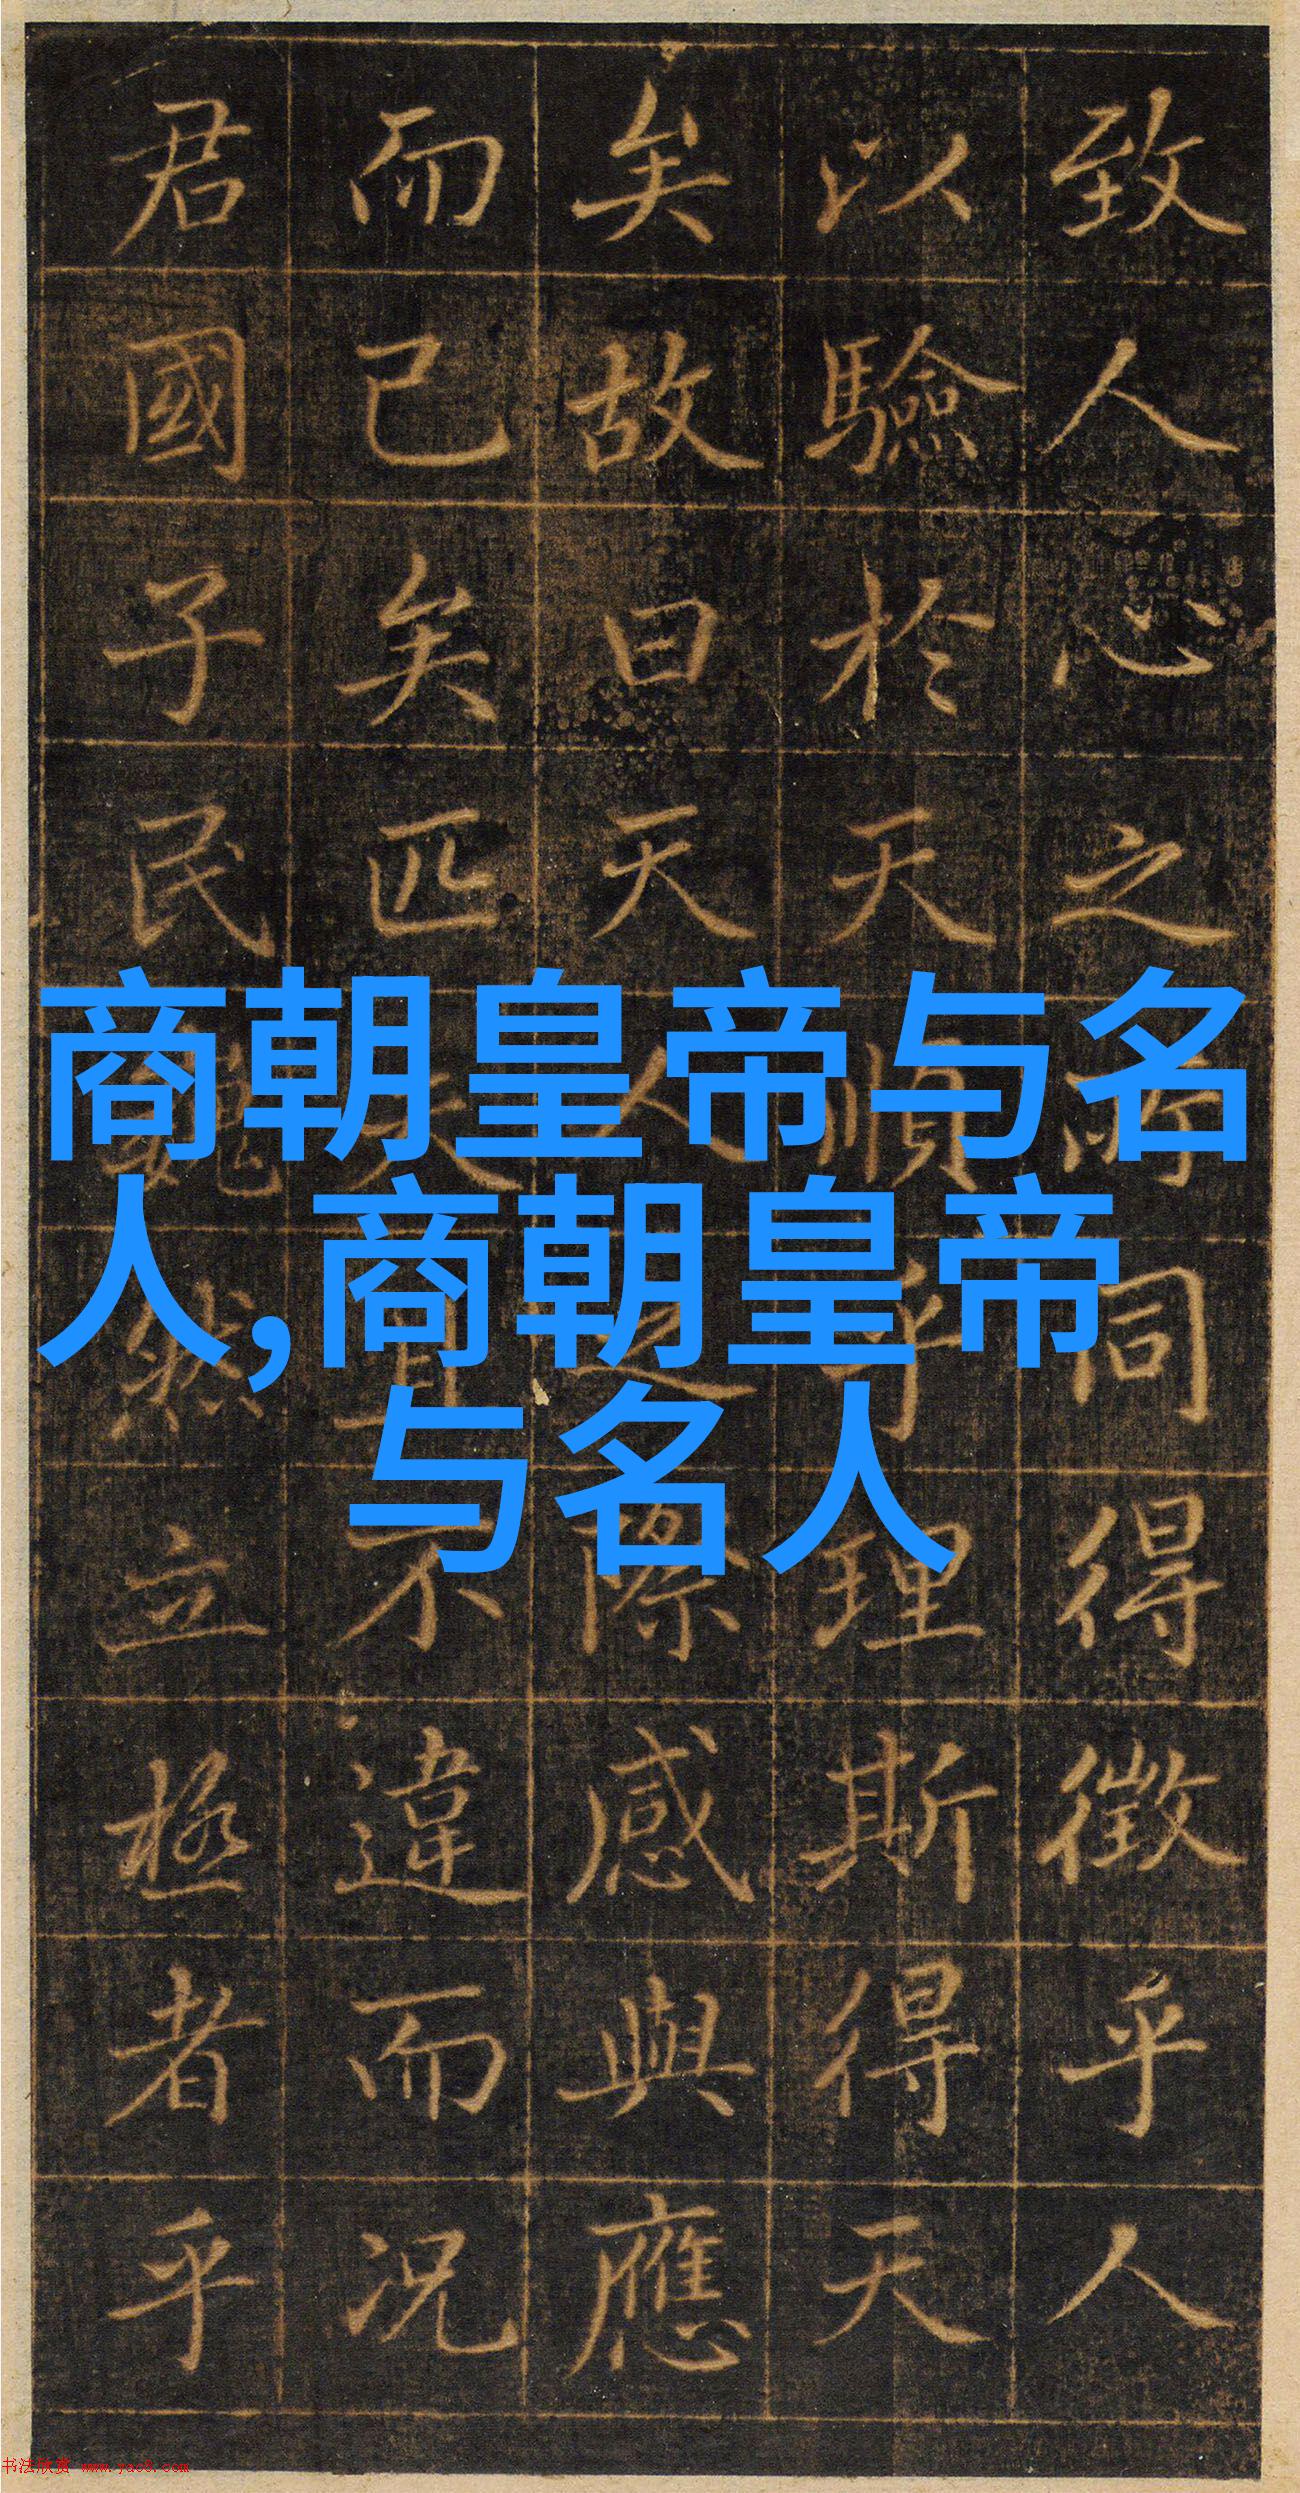 致人心之所同得徵乎人
以驗於天順乎理斯得天
矣故曰天人之際感與應
而已矣匹夫且不違而況
君國子民巍然立極者乎
商朝皇帝与名
人,商朝皇帝
与名人
书法欣赏 www.yac8.com